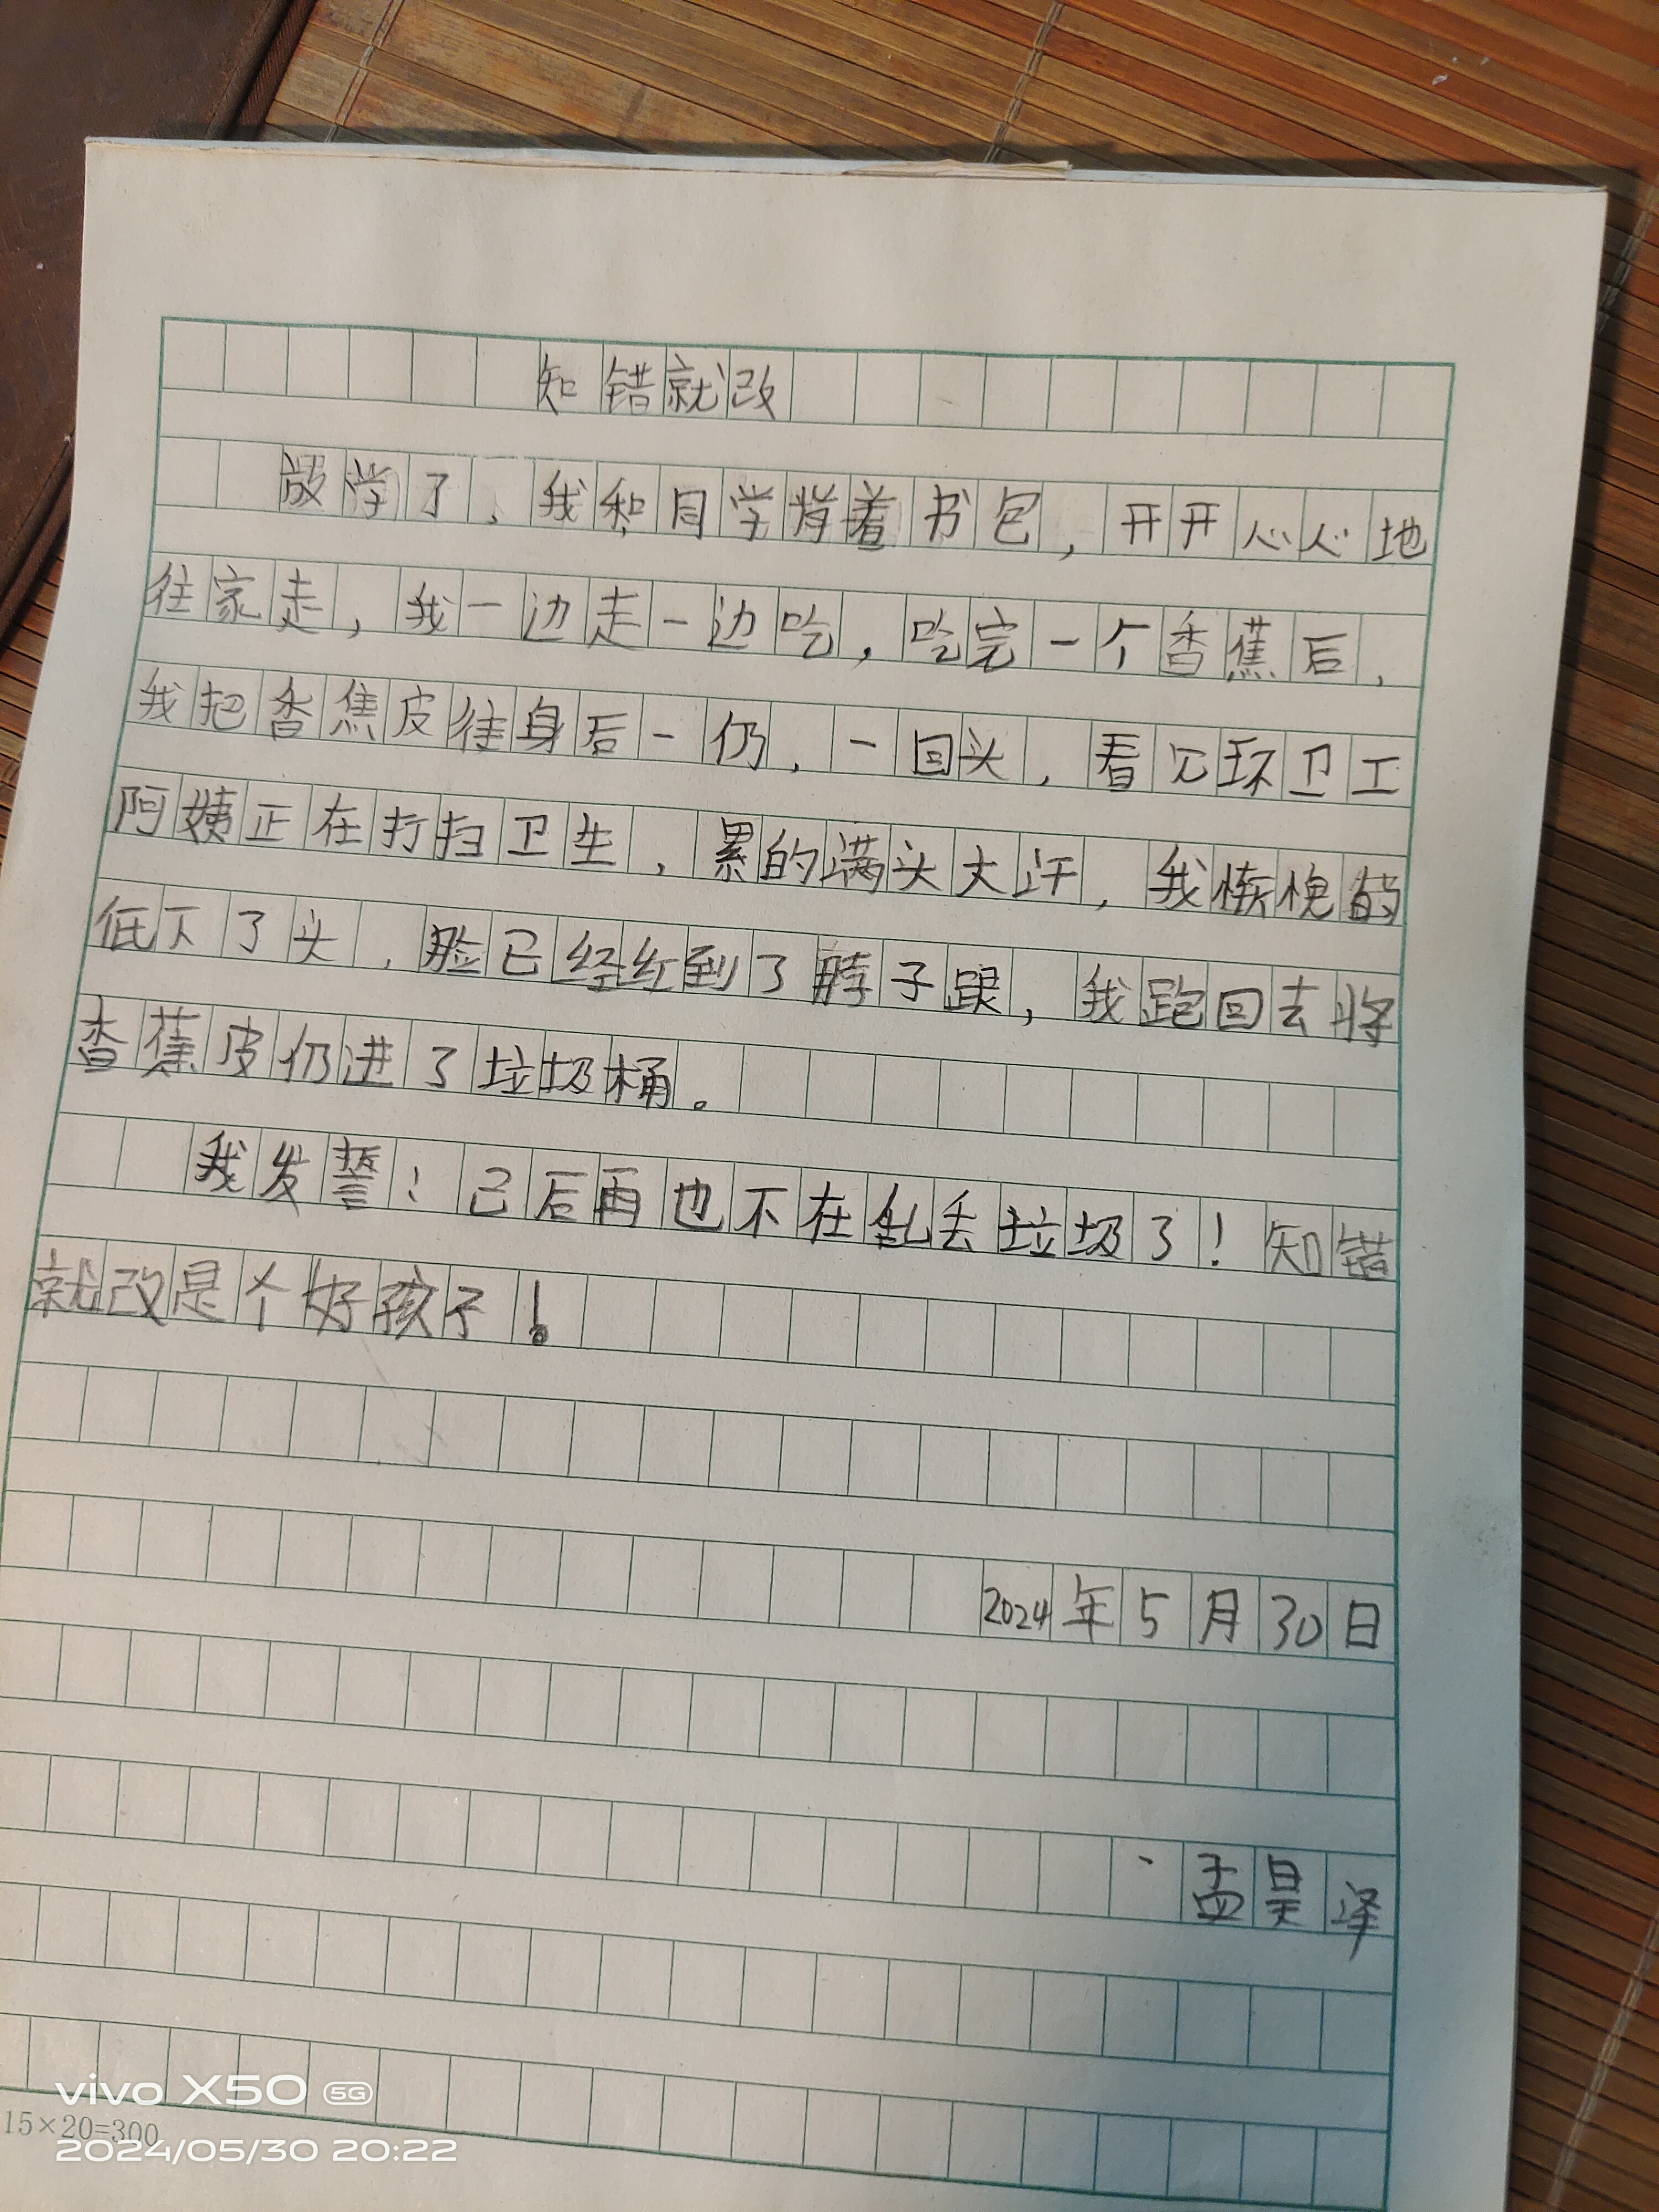 知错就改
放学了，我和同学背着书包，开开心心地
往家走，我一边走一边吃，吃完一个香蕉后，
我把香焦皮往身后一仍，一回头，看见环卫工
阿姨正在打扫卫生，累的满头大汗，我惭愧的
低下了头，脸已经红到了脖子跟，我跑回去将
香蕉皮仍进了垃圾桶。
我发誓！已后再也不在乱丢垃圾了！知错
就改是个好孩子！
2024年5月30日
孟昊泽
vivo X50 5G
15×20=300
2024/05/30 20:22